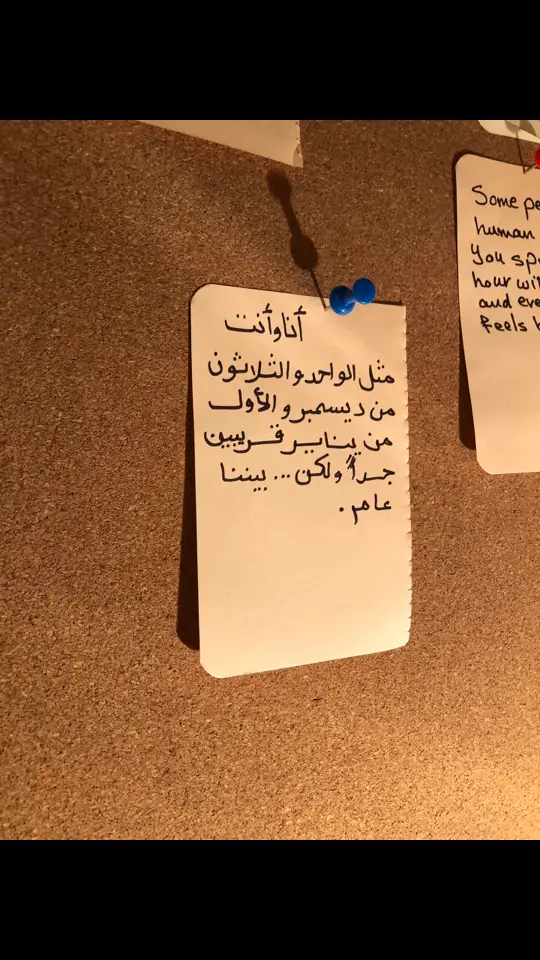 أنا وأنت
مثل الواحد والثلاثون
من ديسمبر والأول
من يناير قريبين
جداً ولكن... بيننا
عام.
Some pe
human
You sp
hour wi
and eve
feels